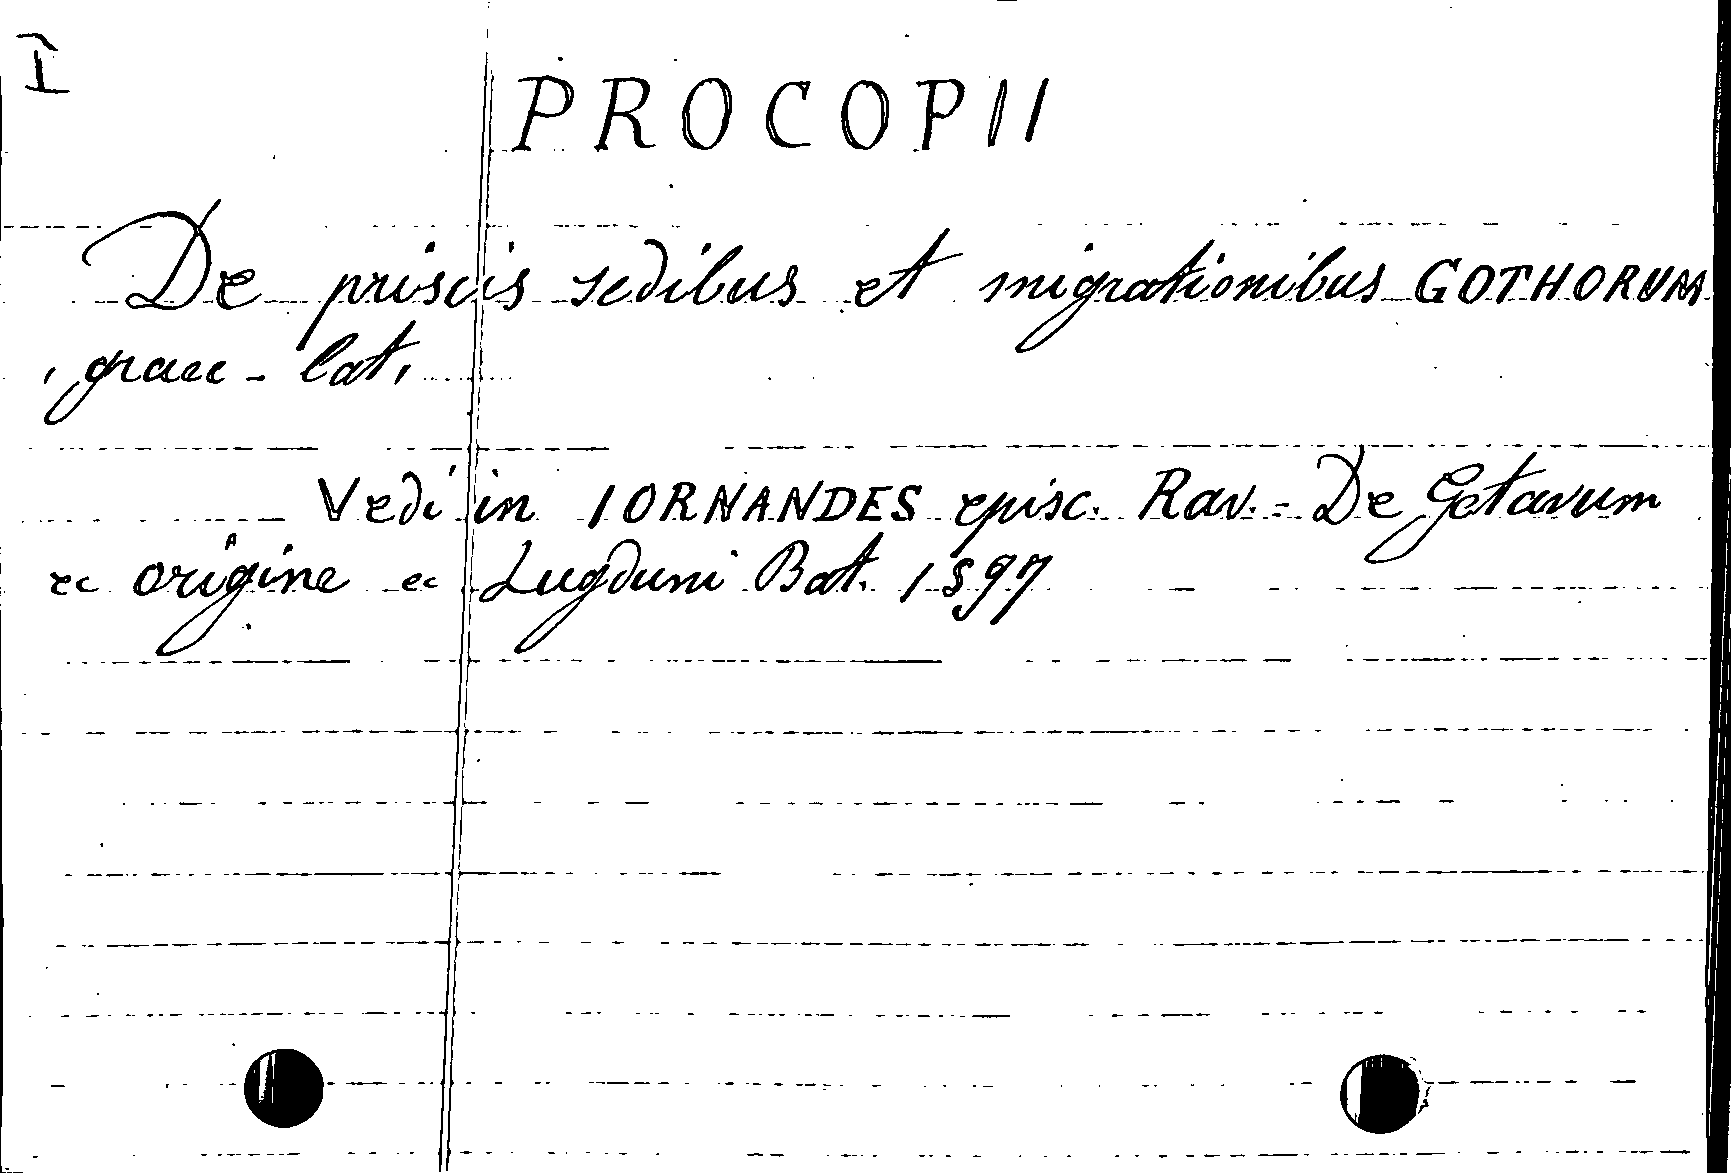 I
PROCOPII
De priscis sedibus et migrationibus GOTHORUM
, graec - lat.
Vedi in IORNANDES episc. Rav. = De Getarum
ec origine ec Lugduni Bat. 1597